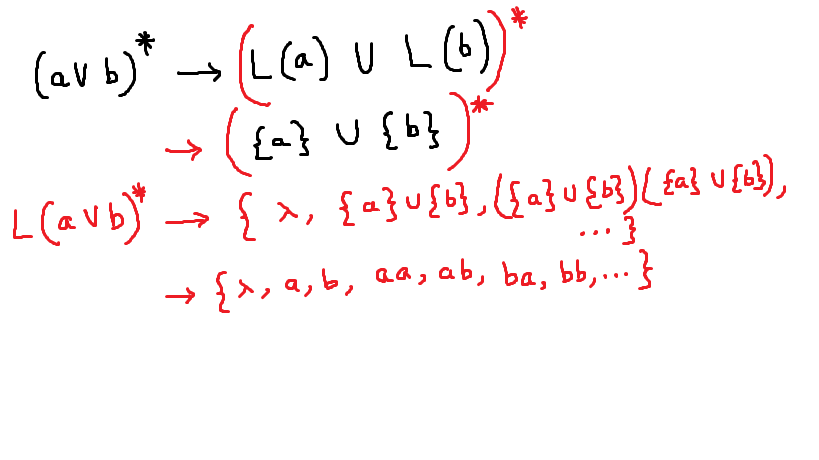 (a ∨ b)* → (L(a) ∪ L(b))*
→ ({a} ∪ {b})*
L(a ∨ b)* → { λ, {a} ∪ {b}, ({a} ∪ {b})({a} ∪ {b}),
... }
→ { λ, a, b, aa, ab, ba, bb, ... }